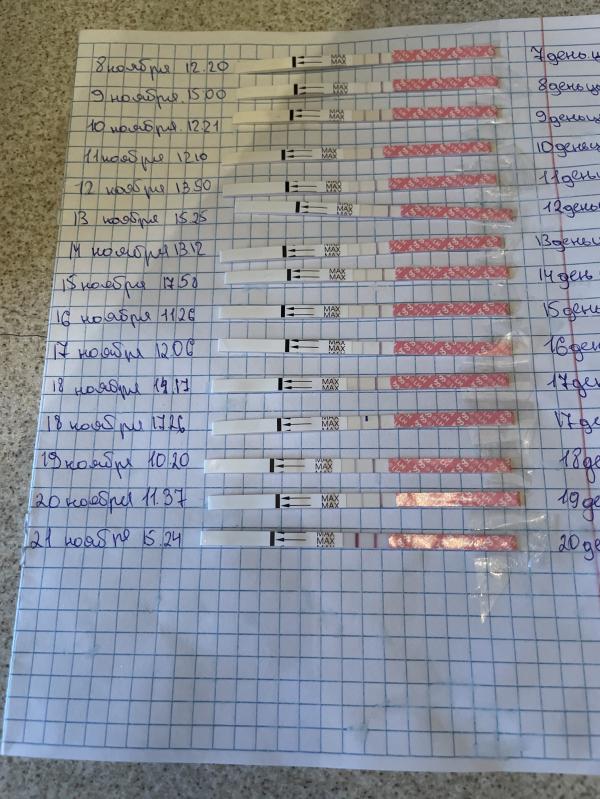 8 ноября 12.20 MAX MAX 7 день ц
9 ноября 15.00 MAX MAX 8 день ц
10 ноября 12.21 MAX MAX 9 день ц
11 ноября 12.10 MAX MAX 10 день ц
12 ноября 13.50 MAX MAX 11 день ц
13 ноября 15.25 MAX MAX 12 день ц
14 ноября 13.12 MAX MAX 13 день ц
15 ноября 17.50 MAX MAX 14 день
16 ноября 11.26 MAX MAX 15 день
17 ноября 12.06 MAX MAX 16 де
18 ноября 14.17 MAX MAX 17 де
18 ноября 17.26 MAX MAX 17 де
19 ноября 10.20 MAX MAX 18 де
20 ноября 11.37 MAX MAX 19 де
21 ноября 15.24 MAX MAX 20 де